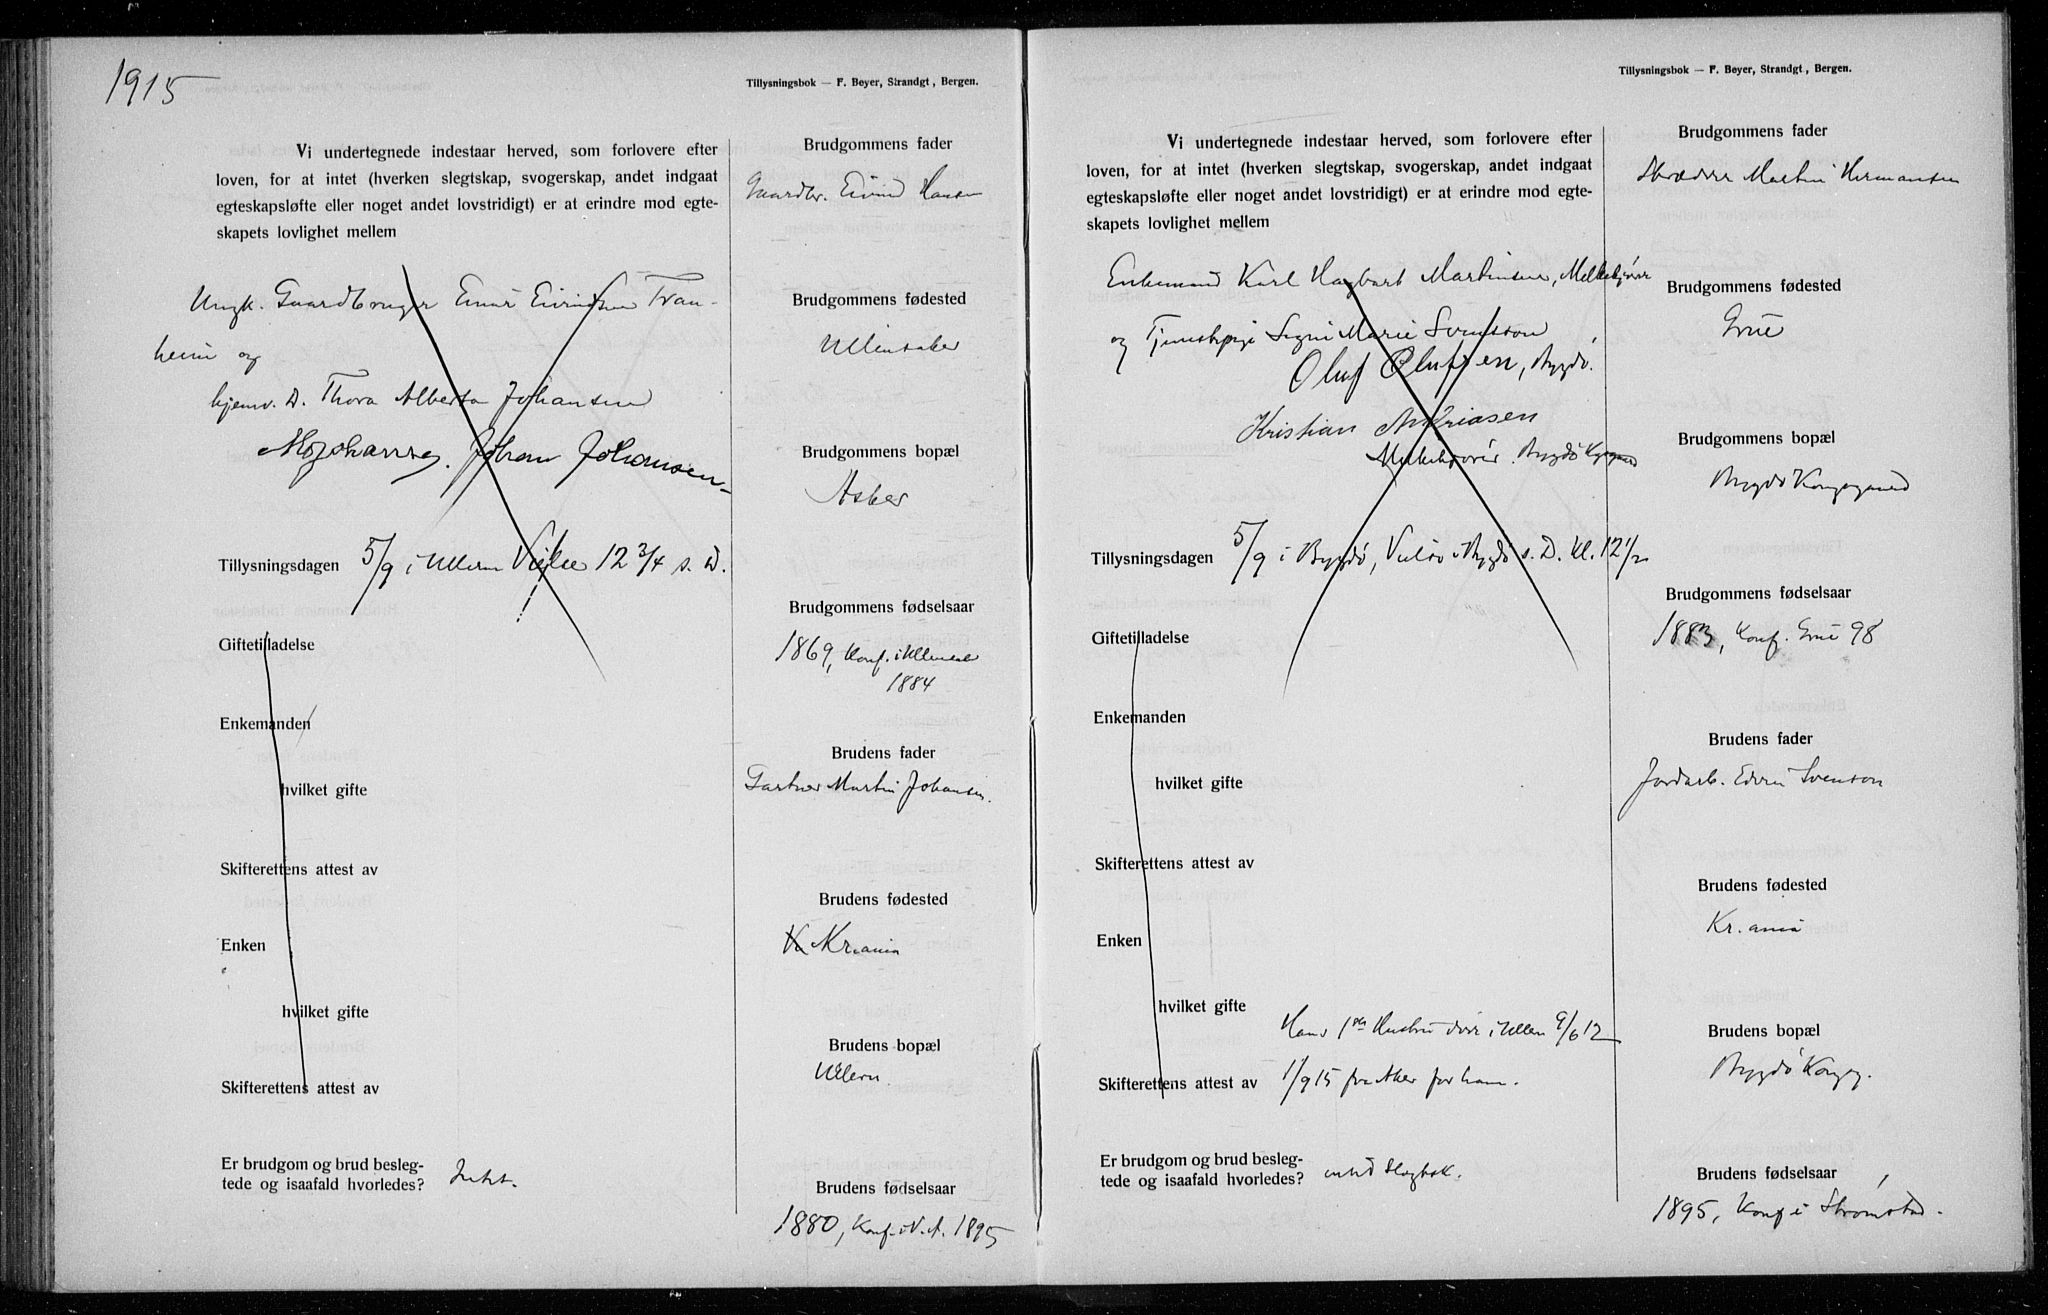 1915
Tillysningsbok — F. Beyer, Strandgt, Bergen.
Vi undertegnede indestaar herved, som forlovere efter
loven, for at intet (hverken slegtskap, svogerskap, andet indgaat
egteskapsløfte eller noget andet lovstridigt) er at erindre mod egte-
skapets lovlighet mellem
Ungk. Gaardbruger Einar Eivindsen Tran-
heim og
hjemv. D. Thora Alberta Johansen
Johan Johansen
Tillysningsdagen 5/9 i Ullern Vielse 12 3/4 s. D.
Giftetilladelse
Enkemanden
hvilket gifte
Skifterettens attest av
Enken
hvilket gifte
Skifterettens attest av
Er brudgom og brud besleg-
tede og isaafald hvorledes? Intet.
Brudgommens fader
Gaardbr. Eivind Hansen
Brudgommens fødested
Ullensaker
Brudgommens bopæl
Asker
Brudgommens fødselsaar
1869, Konf. i Ullensak
1884
Brudens fader
Gartner Martin Johansen.
Brudens fødested
Kr.ania
Brudens bopæl
Ullern.
Brudens fødselsaar
1880, Konf. i V. A. 1895
Tillysningsbok — F. Beyer, Strandgt, Bergen.
Vi undertegnede indestaar herved, som forlovere efter
loven, for at intet (hverken slegtskap, svogerskap, andet indgaat
egteskapsløfte eller noget andet lovstridigt) er at erindre mod egte-
skapets lovlighet mellem
Enkemand Karl Hagbart Martinsen, Melkekjører
og Tjenestepige Signe Marie Svensson
Oluf Olufsen, Bygdö.
Kristian Andriasen
Melkekjører. Bygdö Kgsgaard
Tillysningsdagen 5/9 i Bygdö, Vielse i Bygdö s. D. kl. 12 1/2
Giftetilladelse
Enkemanden
hvilket gifte
Skifterettens attest av
Enken
hvilket gifte
Hans 1ste Hustru døde i Ullern 9/6 12
Skifterettens attest av 1/9 15 fra Aker for ham.
Er brudgom og brud besleg-
tede og isaafald hvorledes?
Brudgommens fader
Skrædder Martin Hermansen
Brudgommens fødested
Grue
Brudgommens bopæl
Bygdö Kongsgaard
Brudgommens fødselsaar
1883, Konf. Grue 98
Brudens fader
Jordarb. Svenson
Brudens fødested
Kr.ania
Brudens bopæl
Bygdö Kongsg.
Brudens fødselsaar
1895, Konf i Strømstad.